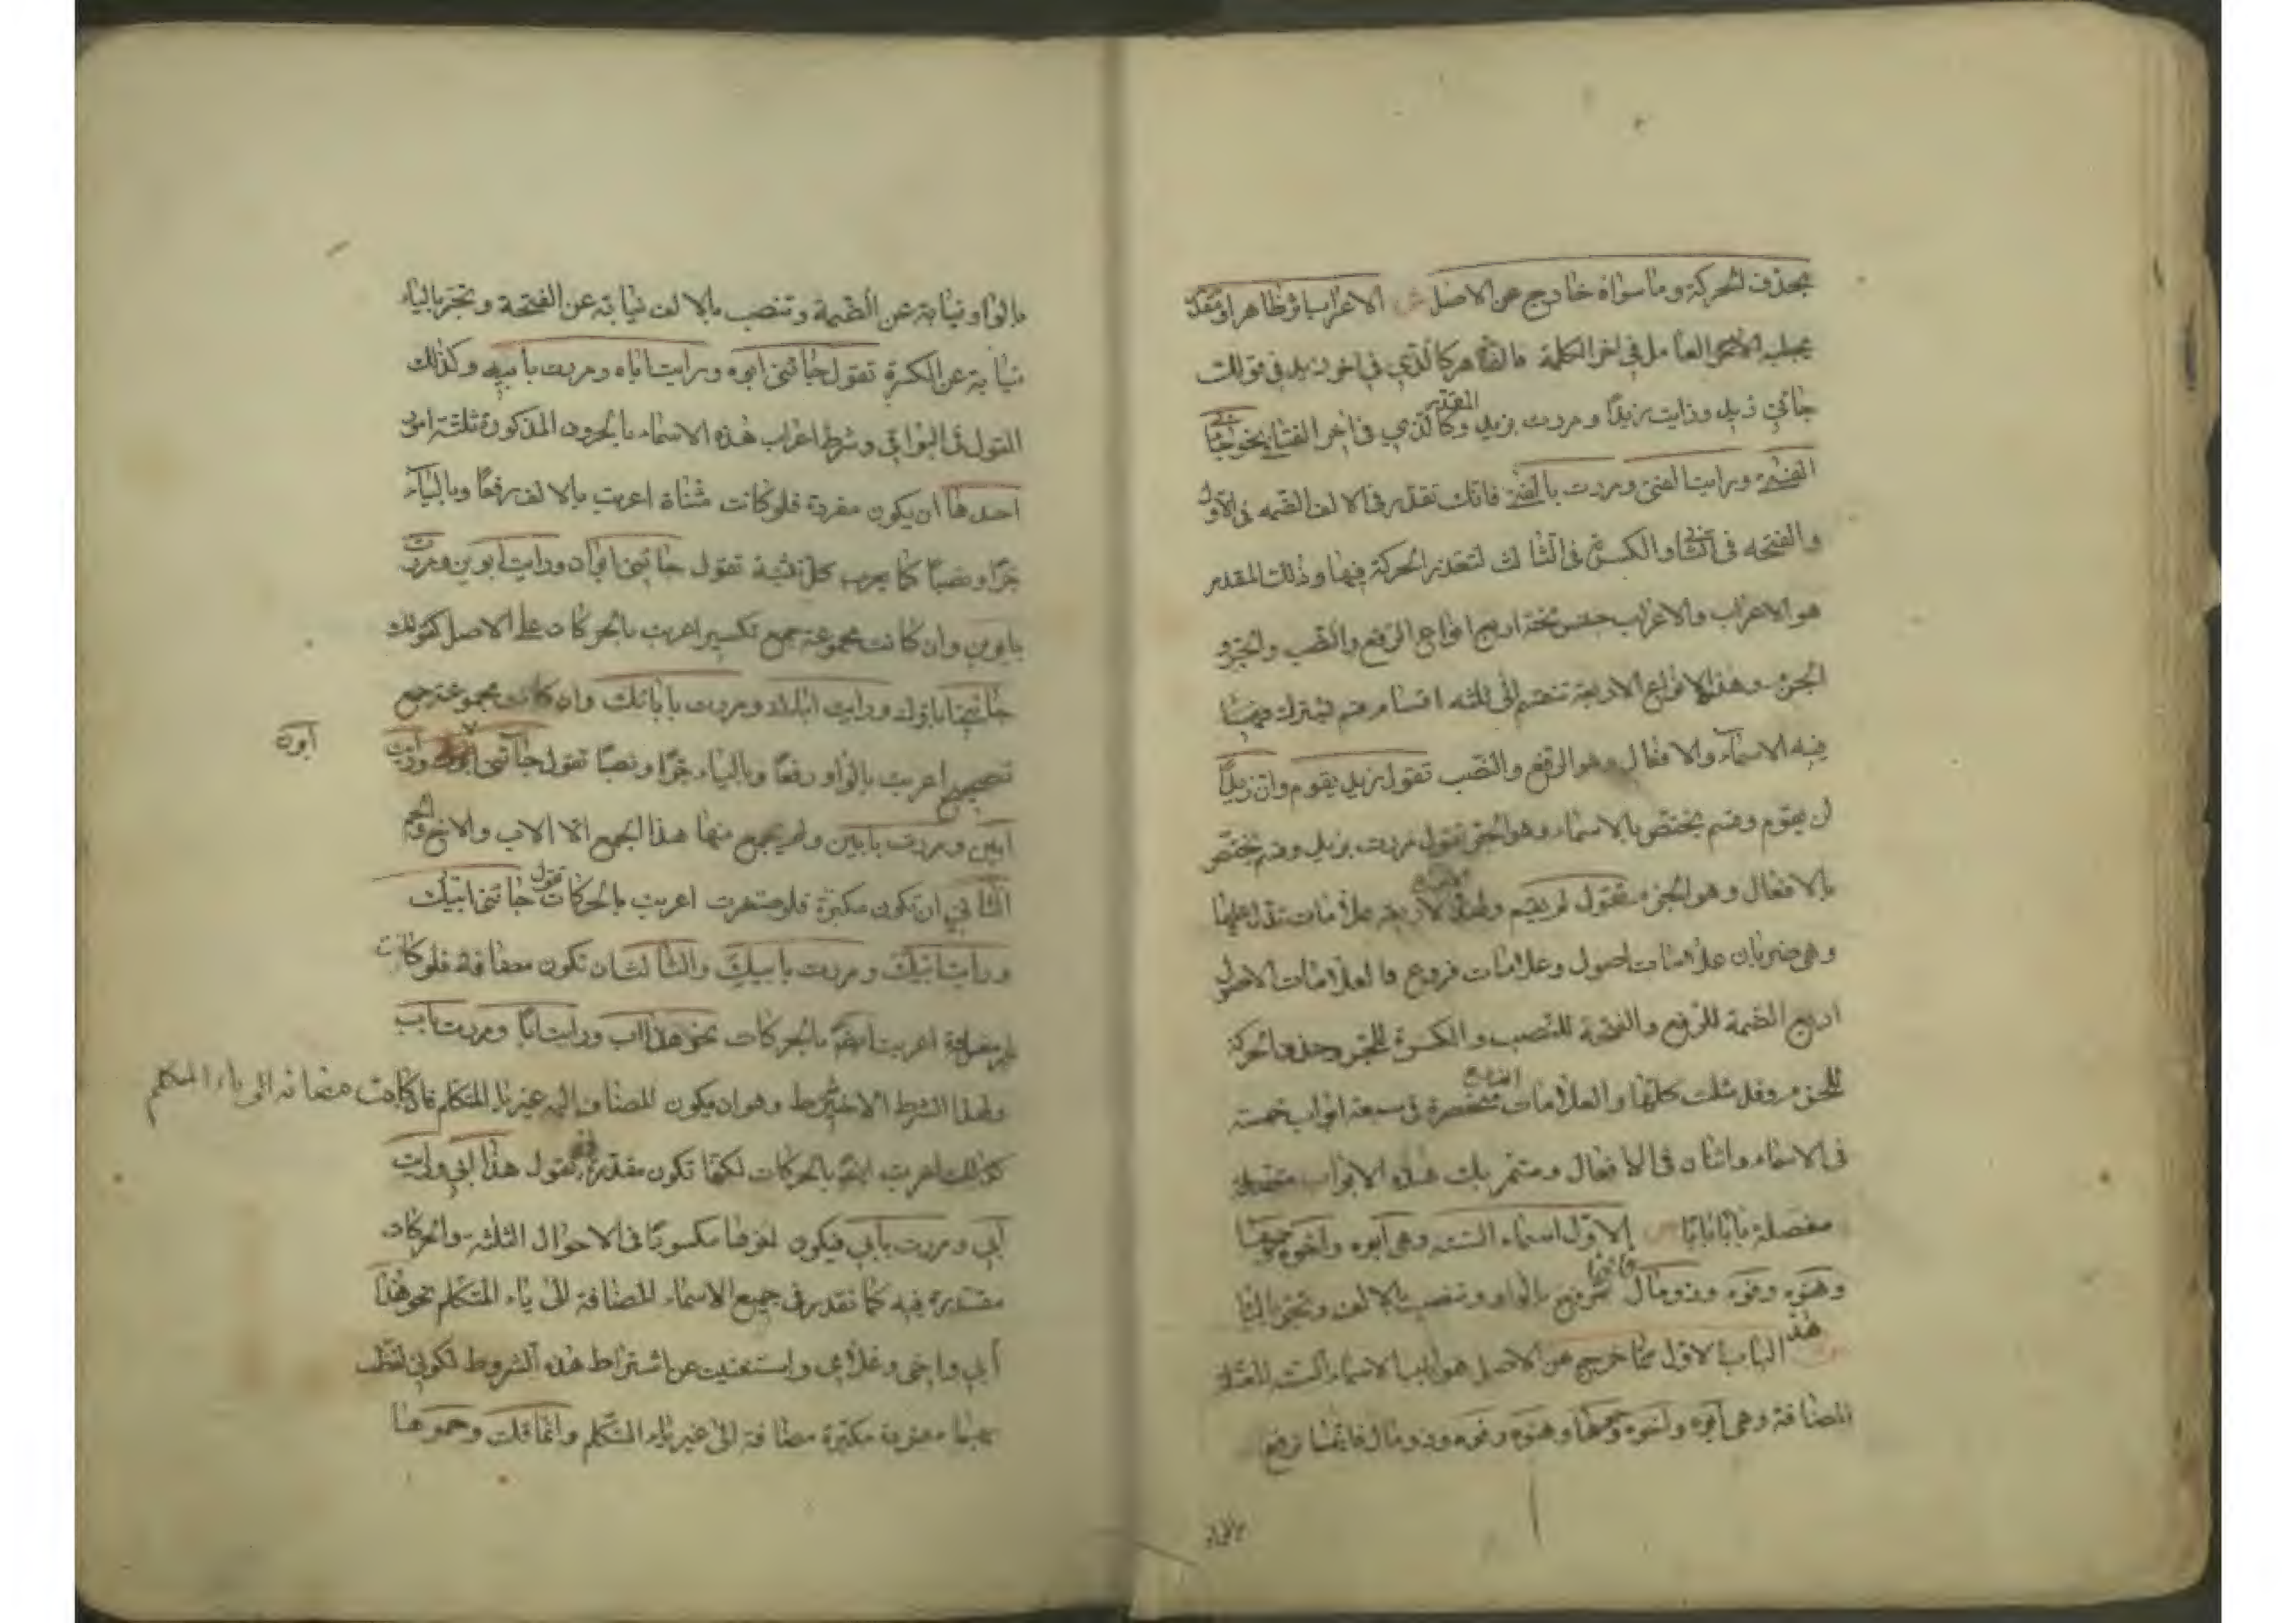 بحذف الحركة وما سواه خارج عن الاصل ش الاعراب اثر ظاهر او مقدر
يجلبه العامل في اخر الكلمة فالظاهر كالذي في اخر زيد في قولك
جائني زيد ورايت زيدًا ومررت بزيد والمقدر كالذي في اخر الفتى نحو جائني
الفتى ورايت الفتى ومررت بالفتى فانك تقدر في الالف الضمه في الاول
والفتحه في الثاني والكسرة في الثالث لتعذر الحركة فيها وذلك المقدر
هو الاعراب والاعراب جنس تحته اربع انواع الرفع والنصب والجر و
الجزم وهذه الانواع الاربعة تنقسم الى ثلثه اقسام قسم يشترك
فيه الاسماء والافعال وهو الرفع والنصب تقول زيد يقوم وان زيدًا
لن يقوم وقسم يختص بالاسماء وهو الجر تقول مررت بزيد وقسم يختص
بالافعال وهو الجزم تقول لم يقم ولهذه الاربعه علامات تدل عليها
وهي ضربان علامات اصول وعلامات فروع فالعلامات الاصول
اربع الضمة للرفع والفتحة للنصب والكسرة للجر وحذف الحركة
للجزم وقد مثلت كلها والعلامات الفروع منحصرة في سبعة ابواب خمسة
في الاسماء واثنان في الافعال وستمر بك هذه الابواب
مفصلة بابًا بابًا ص الاول اسماء الستة وهي ابوه واخوه وحموها
وهنوه وفوه وذو مال فانها ترفع بالواو وتنصب بالالف وتجر باليا
ش هذا الباب الاول مما خرج عن الاصل هو باب الاسماء الستة المعتلة
المضافة وهي ابوه واخوه وحموها وهنوه وفوه وذو مال فانها ترفع
بالواو
بالواو نيابة عن الضمة وتنصب بالالف نيابة عن الفتحة وتجر بالياء
نيابة عن الكسرة تقول جائني ابوه ورايت اباه ومررت بابيه وكذلك
القول في البواقي وشرط اعراب هذه الاسماء بالحروف المذكورة ثلثة امور
احدها ان يكون مفردة فلو كانت مثناة اعربت بالالف رفعًا وبالياء
جرًا ونصبًا كما يعرب كل تثنية تقول جائني ابوان ورايت ابوين ومررت
بابوين وان كانت مجموعة جمع تكسير اعربت بالحركات على الاصل كقولك
جائني اباؤك ورايت اباءك ومررت بابائك وان كانت مجموعة جمع
تصحيح اعربت بالواو رفعًا وبالياء جرًا ونصبًا تقول جائني ابون ورايت
ابون
ابين ومررت بابين ولم يجمع منها هذا الجمع الا الاب والاخ والحم
الثاني ان تكون مكبرة فلو صغرت اعربت بالحركات تقول جائني ابيك
ورايت ابيك ومررت بابيك والثالث ان تكون مضافة فلو كانت
غير مضافة اعربت ايضًا بالحركات نحو هذا اب ورايت ابًا ومررت باب
ولهذا الشرط الاخير شرط وهو ان يكون المضاف اليه غير ياء المتكلم فان كانت مضافه الى ياء المتكلم
كذلك اعربت ايضًا بالحركات لكنها تكون مقدرة فتقول هذا ابي ورايت
ابي ومررت بابي فيكون اخرها مكسورًا في الاحوال الثلثة والحركات
مقدرة فيه كما تقدر في جميع الاسماء المضافة الى ياء المتكلم نحو هذا
ابي واخي وغلامي واستغنيت عن اشتراط هذه الشروط لكوني لفظت
بها مفردة مكبرة مضافة الى غير ياء المتكلم وانما قلت وحموها